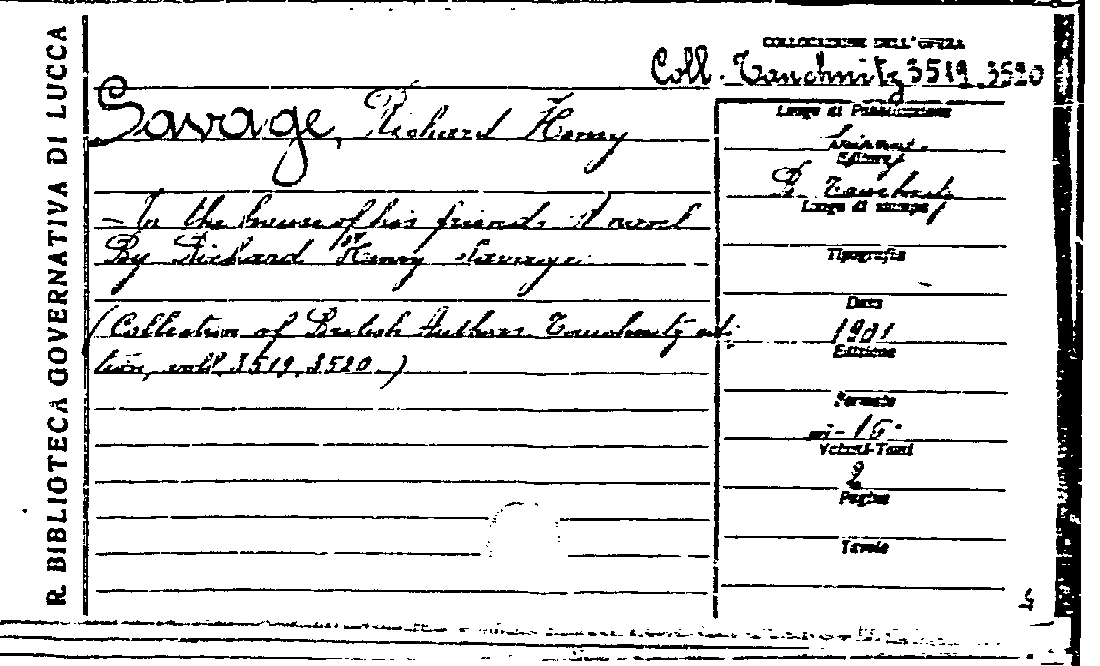 R. BIBLIOTECA GOVERNATIVA DI LUCCA
COLLOCAZIONE DELL'OPERA
Coll. Tauchnitz 3519_3520
Savage, Richard Henry
In the house of his friends. A novel
By Richard Henry Savage
(Collection of British Authors Tauchnitz edi-
tion, voll. 3519, 3520.)
Luogo di Pubblicazione
Editore
B. Tauchnitz
Luogo di stampa
Tipografia
Data
1901
Edizione
Formato
in-16°
Volumi-Tomi
2
Pagine
Tavole